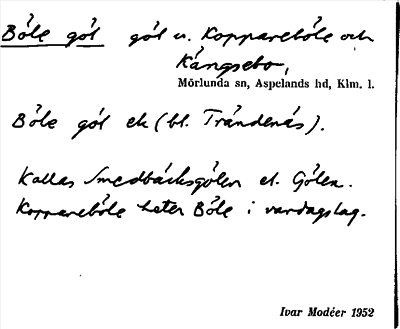 Böle göl göl u. Koppareböle och
Kångsebo,
Mörlunda sn, Aspelands hd, Klm. l.
Böle göl ek (bl. Trändenäs).
Kallas Smedbäcksgölen el. Gölen.
Koppareböle heter Böle i vardagslag.
Ivar Modéer 1952